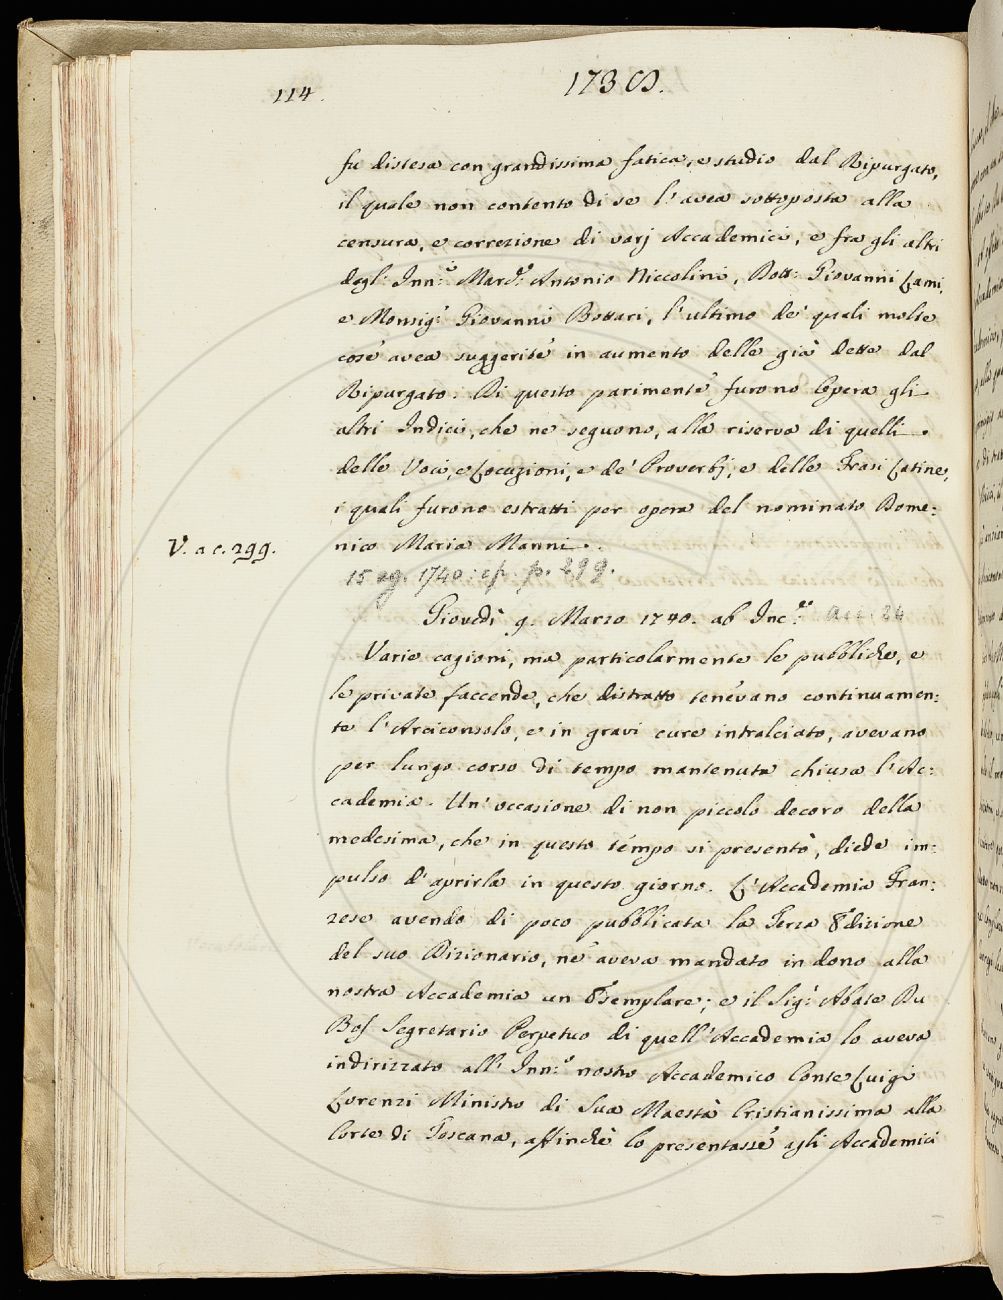 114.
1738.
fu distesa con grandissima fatica, e studio dal Ripurgato,
il quale non contento di se l'avea sottoposta alla
censura, e correzione di varj Accademici, e fra gli altri
degl' Inn.i March.e Antonio Niccolini, Dott: Giovanni Lami,
e Monsig.r Giovanni Bottari, l'ultimo de' quali molte
cose avea suggerite in aumento delle già dette dal
Ripurgato. Di questo parimente furono Opera gli
altri Indici, che ne seguono, alla riserva di quelli
delle Voci, e Locuzioni, e de' Proverbj, e delle Frasi Latine,
i quali furono estratti per opera del nominato Dome:
V. a c. 299.
nico Maria Manni.
15 ag. 1740. cf. p. 299.
Giovedì 9. Marzo 1740. ab Inc.e
Varie cagioni, ma particolarmente le pubbliche, e
le private faccende, che distratto tenevano continuamen:
te l'Arciconsolo, e in gravi cure intralciato, avevano
per lungo corso di tempo mantenuta chiusa l'Ac:
cademia. Un'occasione di non piccolo decoro della
medesima, che in questo tempo si presentò, diede im:
pulso d'aprirla in questo giorno. L'Accademia Fran:
zese avendo di poco pubblicata la Terza Edizione
del suo Dizionario, ne aveva mandato in dono alla
nostra Accademia un Esemplare; e il Sig.r Abate Du
Bos Segretario Perpetuo di quell'Accademia lo aveva
indirizzato all' Inn.o nostro Accademico Conte Luigi
Lorenzi Ministro di Sua Maestà Cristianissima alla
Corte di Toscana, affinchè lo presentasse agli Accademici